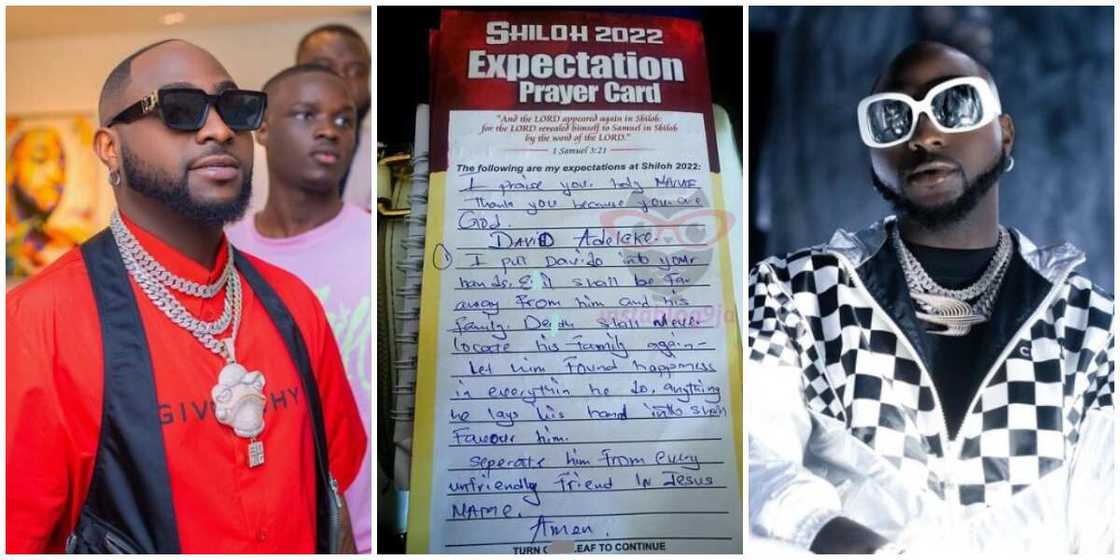 GIVENCHY
SHILOH 2022
Expectation
Prayer Card
"And the LORD appeared again in Shiloh:
for the LORD revealed himself to Samuel in Shiloh
by the word of the LORD."
1 Samuel 3:21
The following are my expectations at Shiloh 2022:
I praise your holy NAME
Thank you because you are
God.
DAVID Adeleke.
① I put Davido into your
hands. Evil shall be far
away from him and his
family. Death shall never
locate his family again-
Let him found happness
in everything he do. anything
he lays his hand into shall
Favour him.
seperate him from every
unfriendly friend IN Jesus
NAME.
Amen.
TURN LEAF TO CONTINUE
instablog9ja